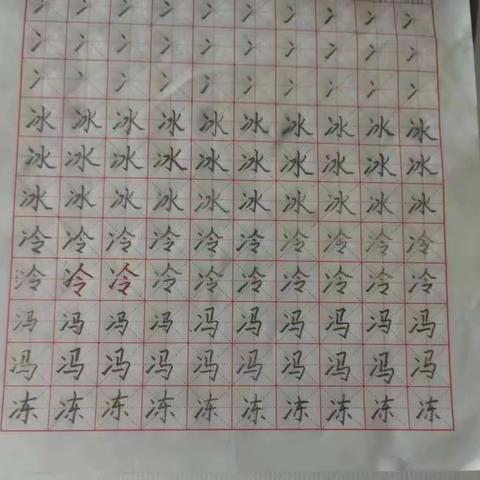 冫冫冫冫冫冫冫冫冫冫
冫冫冫冫冫冫冫冫冫冫
冫冫冫冫冫冫冫冫冫冫
冰冰冰冰冰冰冰冰冰冰
冰冰冰冰冰冰冰冰冰冰
冰冰冰冰冰冰冰冰冰冰
冷冷冷冷冷冷冷冷冷冷
冷冷冷冷冷冷冷冷冷冷
冯冯冯冯冯冯冯冯冯冯
冯冯冯冯冯冯冯冯冯冯
冻冻冻冻冻冻冻冻冻冻